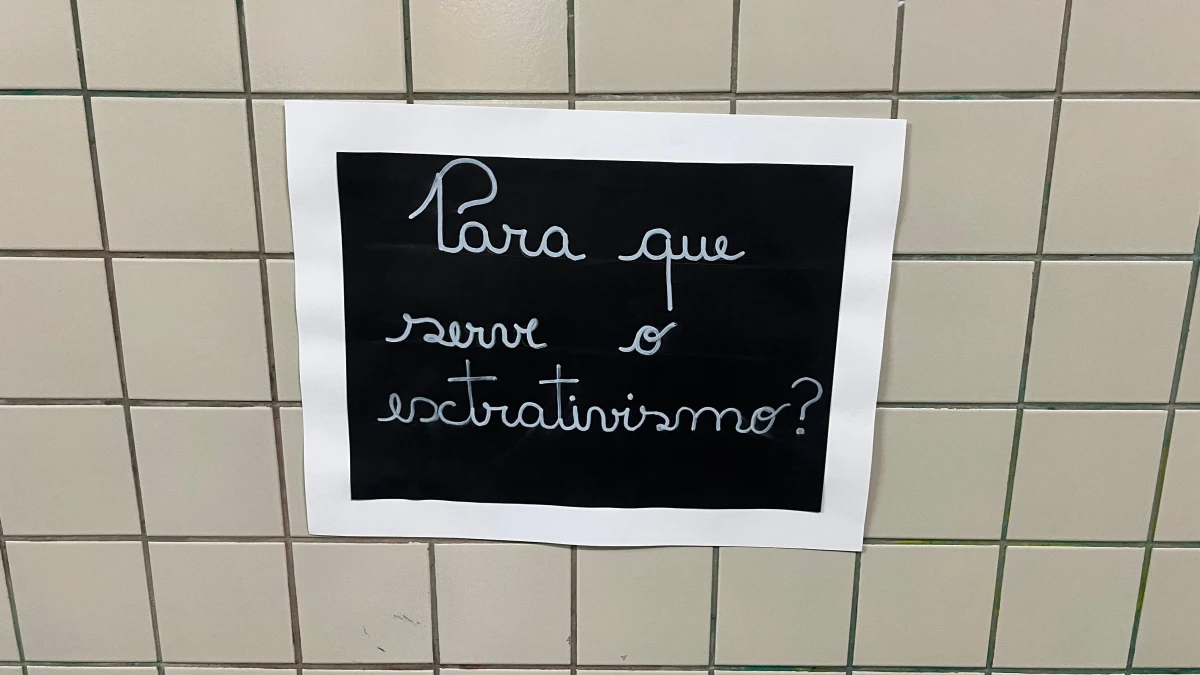 Para que
serve o
extrativismo?